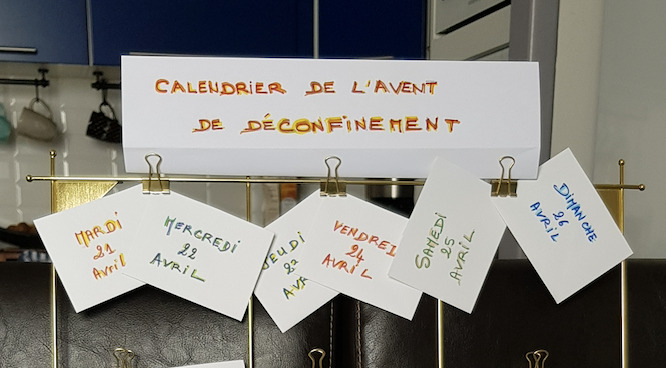 CALENDRIER DE L'AVENT
DE DÉCONFINEMENT
MARDI
21
AVRIL
MERCREDI
22
AVRIL
JEUDI
23
AVR
VENDREDI
24
AVRIL
SAMEDI
25
AVRIL
DIMANCHE
26
AVRIL